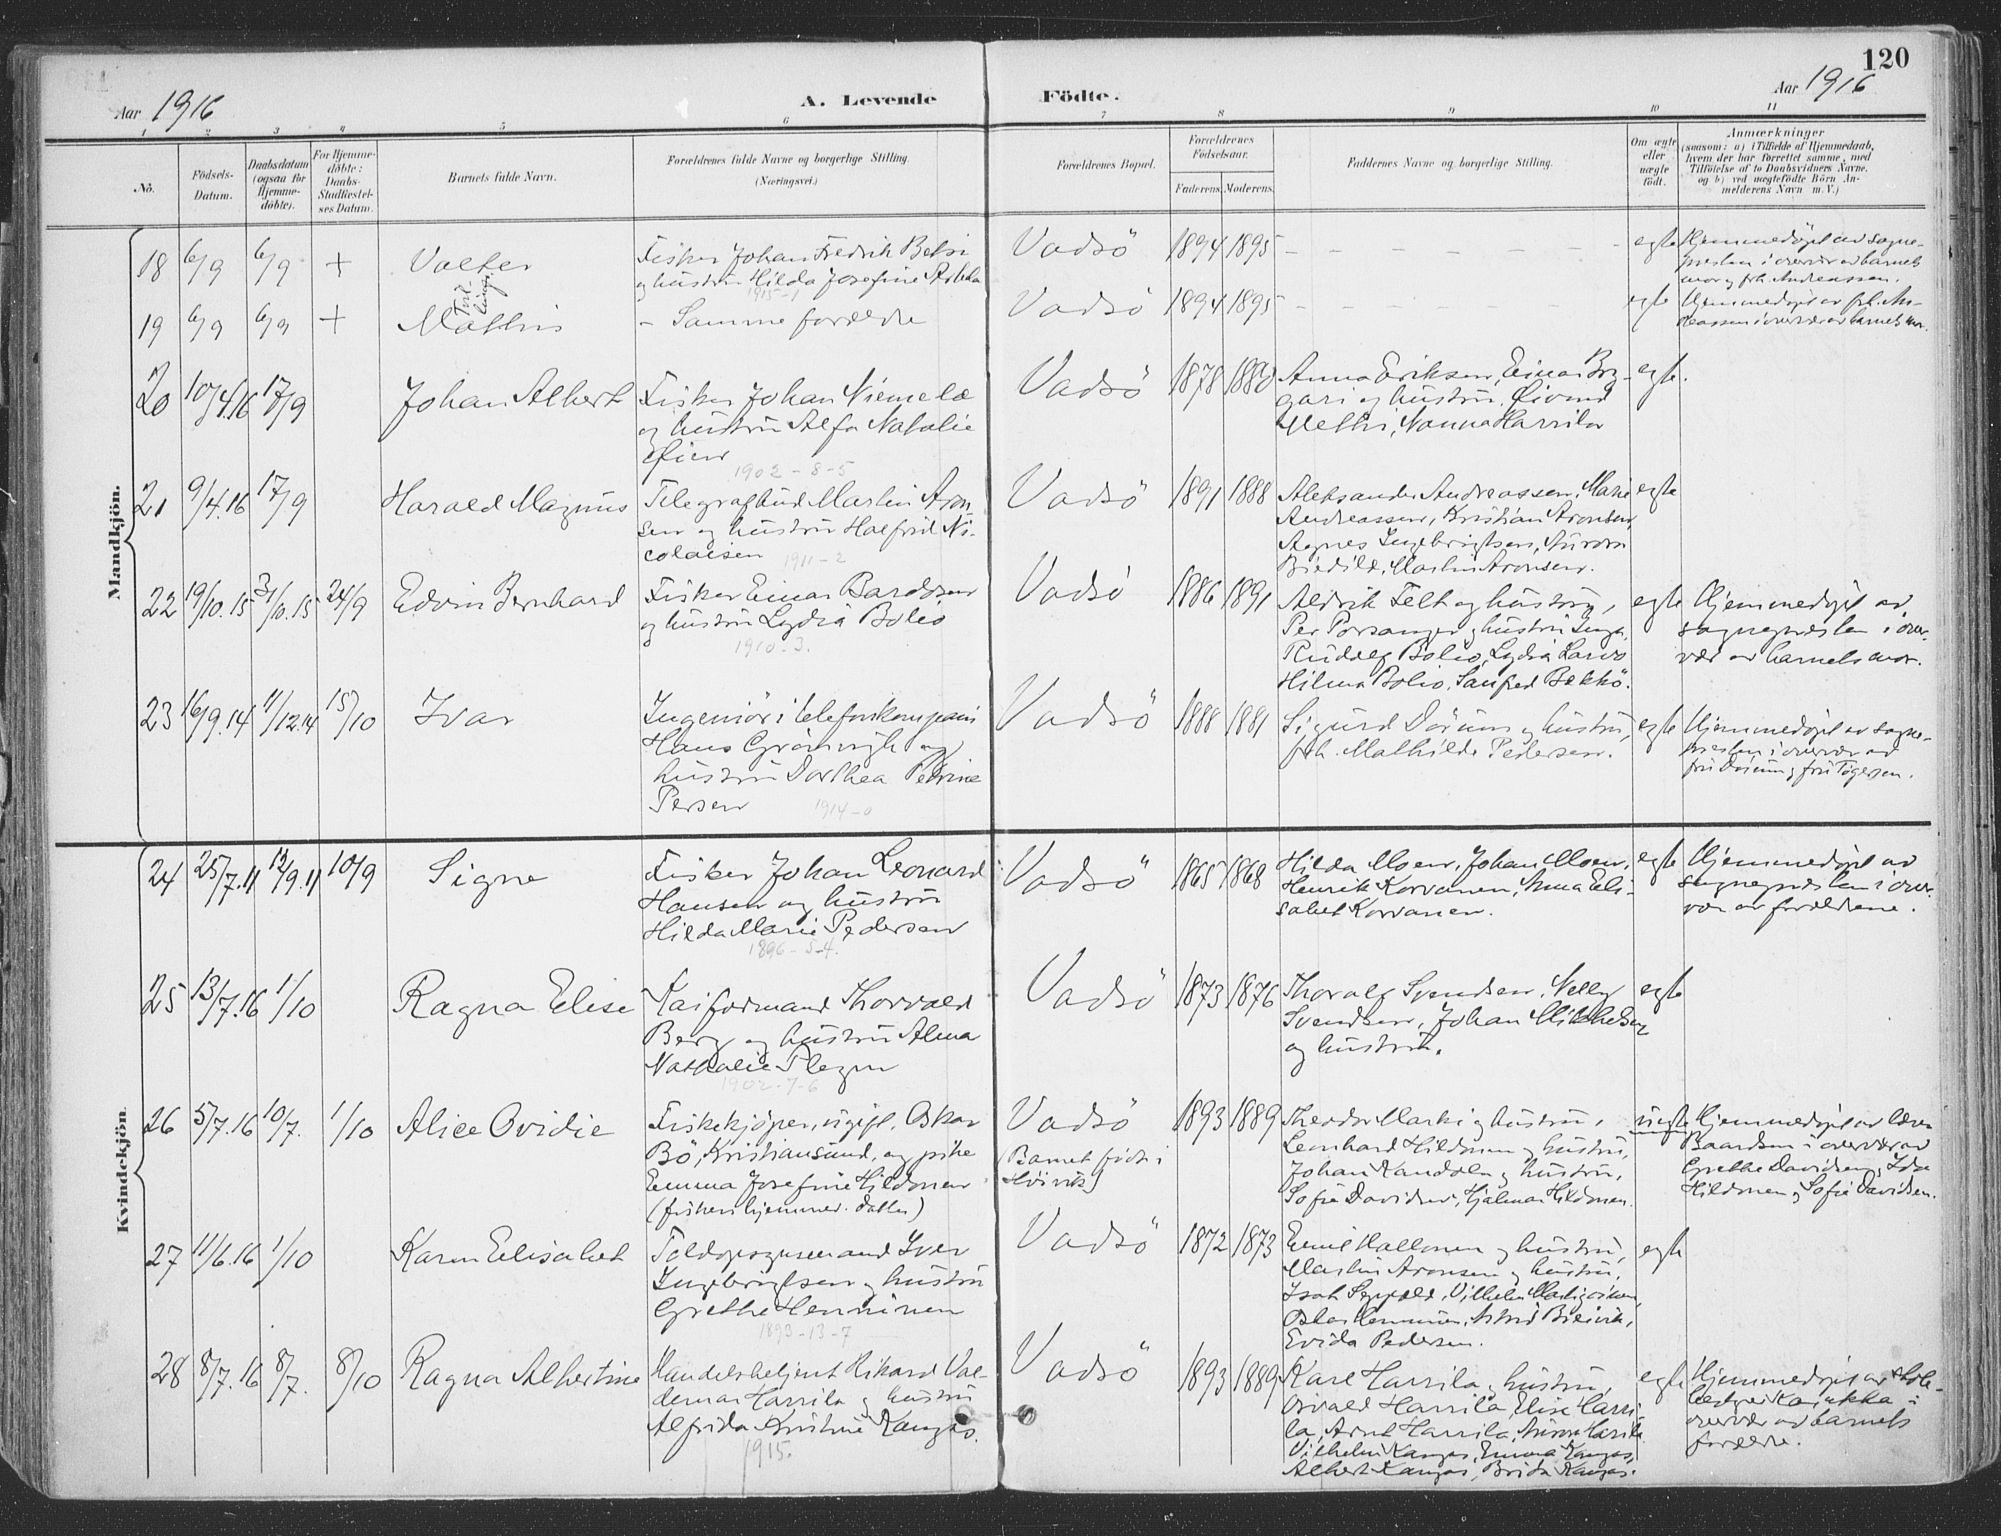 120
Aar 1916
A. Levende
Födte.
Aar 1916
1 2 3 4 5 6 7 8 9 10 11
No.
Födsels-
Datum.
Daabsdatum
(ogsaa for
Hjemme-
döbte).
For Hjemme-
döbte:
Daabs-
Stadfæstel-
ses Datum.
Barnets fulde Navn.
Forældrenes fulde Navne og borgerlige Stilling.
(Næringsvei.)
Forældrenes Bopæl.
Forældrenes
Födselsaar.
Faderens.
Moderens.
Faddernes Navne og borgerlige Stilling.
Om ægte
eller
uægte
födt.
Anmærkninger
(saasom: a) i Tilfælde af Hjemmedaab,
hvem der har forrettet samme, med
Tilföielse af to Daabsvidners Navne,
og b) ved uægtefödte Börn An-
melderens Navn m. V.)
Mandkjön.
18 6/9 6/9 + Valter
Fisker Johan Fredrik Betsi
og hustru Hilda Josefine
1915-1
Vadsö 1894 1895 – – – – – – – egte
Hjemmedøpt av sogne-
presten i overvær av barnets
mor og frk. Andreassen.
Tvil-
linger
19 6/9 6/9 + Mathis
– Samme forældre
Vadsö 1894 1895 – – – – – – egte
Hjemmedøpt av frk. An-
dreassen i overvær av barnets mor.
20 10/4.16 17/9 Johan Albert
Fisker Johan Niemelæ
og hustru Alfa Natalie
Øien
1902-8-5
Vadsö 1878 1880
Anna Eriksen, Einar
og hustru, Øivind
Nanna Harrila
egte.
21 9/4.16 17/9 Harald Magnus
Telegrafbud Martin Aron-
sen og hustru Halfrid Ni-
colaisen
1911-2
Vadsö 1891 1888
Aleksander Andreassen, Marie
Andreassen, Kristian Aronsen,
Agnes Ingebrigtsen, Aurora
Martin Aronsen.
egte
22 19/10.15 31/10.15 24/9 Edvin Bernhard
Fisker Einar Bardosen
og hustru Lydia Bolio
1910-3.
Vadsö 1886 1891
Aldrik Felt og hustru,
Per Porsanger og hustru Inga,
Rudolf Bolio, Lydia
Hilma Bolio, Sanfred Bekkö.
egte
Hjemmedøpt av
sognepresten i over-
vær av barnets mor.
23 16/9.14 11/12.14 15/10 Ivar
Ingeniör i telefonkompani
Hans Grönvigh og
hustru Dorthea Petrine
Persen
1914-0
Vadsö 1888 1881
Sigurd Dörum og hustru,
frk. Mathilde Pedersen.
egte
Hjemmedøpt av sogne-
presten i overvær av
fru Dörum og fru Tøgersen.
Kvindekjön.
24 25/7.11 12/9.11 10/9 Signe
Fisker Johan Leonard
Hansen og hustru
Hilda Marie Pedersen
1896-5-4.
Vadsö 1865 1868
Hilda Moen, Johan Moen,
Henrik Korvanen, Anna Eli-
sabet Korvanen.
egte
Hjemmedøpt av
sognepresten i over-
vær av forældrene.
25 13/7.16 1/10 Ragna Elise
Kaiformand Thorvald
Berg og hustru Alma
Nathalie
1902-7-6
Vadsö 1873 1876
Thoralf Svendsen, Nelly
Svendsen, Johan Mikkelsen
og hustru.
egte
26 5/7.16 10/7. 1/10 Alice Ovidie
Fiskekjöper, ugift, Oskar
Bö, Kristiansund, og pike
Emma Josefine Hildonen
(fisker, hjemmev. datter)
Vadsö
(Barnet født i
Høivik)
1893 1889
Theodor Marki og hustru,
Leonhard Hildonen og hustru,
Johan Kandola og hustru,
Sofie Davidsen, Hjalmar Hildonen.
uegte
Hjemmedøpt av lærer
Baardsen i overvær av
Grethe Davidsen, Ida
Hildonen og Sofie Davidsen.
27 11/6.16 1/10 Karen Elisabet
Toldopsynsmand Iver
Ingebrigtsen og hustru
Grethe Henninen
1893-13-7
Vadsö 1872 1873
Emil Hallonen og hustru,
Martin Aronsen og hustru,
Isak Vilhelm
Oskar Henninen, Astrid
Evida Pedersen.
egte
28 8/7.16 8/7. 8/10 Ragna Albertine
Handelsbetjent Rikard Val-
demar Harrila og hustru
Alfrida Kristine Kangas.
1915.
Vadsö 1893 1889
Karl Harrila og hustru,
Osvald Harrila, Elise Harri-
la, Arnt Harrila, Harrila
Vilhelm Kangas, Emma Kangas,
Albert Kangas, Brida Kangas.
egte
Hjemmedøpt av
i
overvær av barnets
forældre.